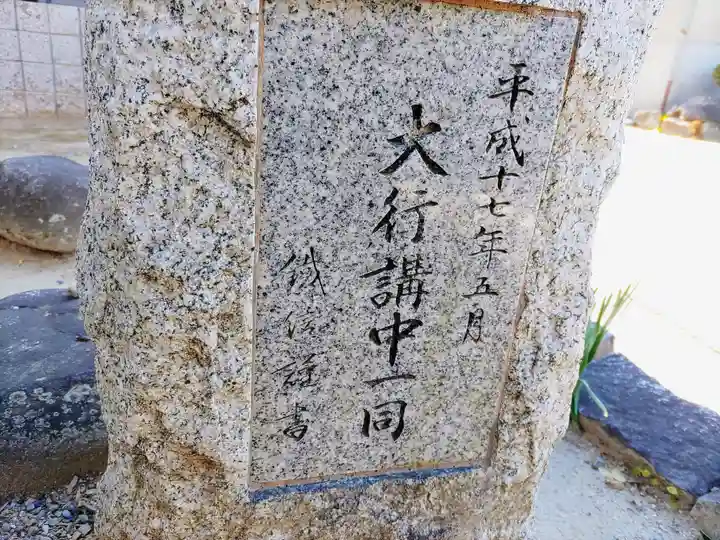 平成十七年五月
大行講中一同
鐵信謹書